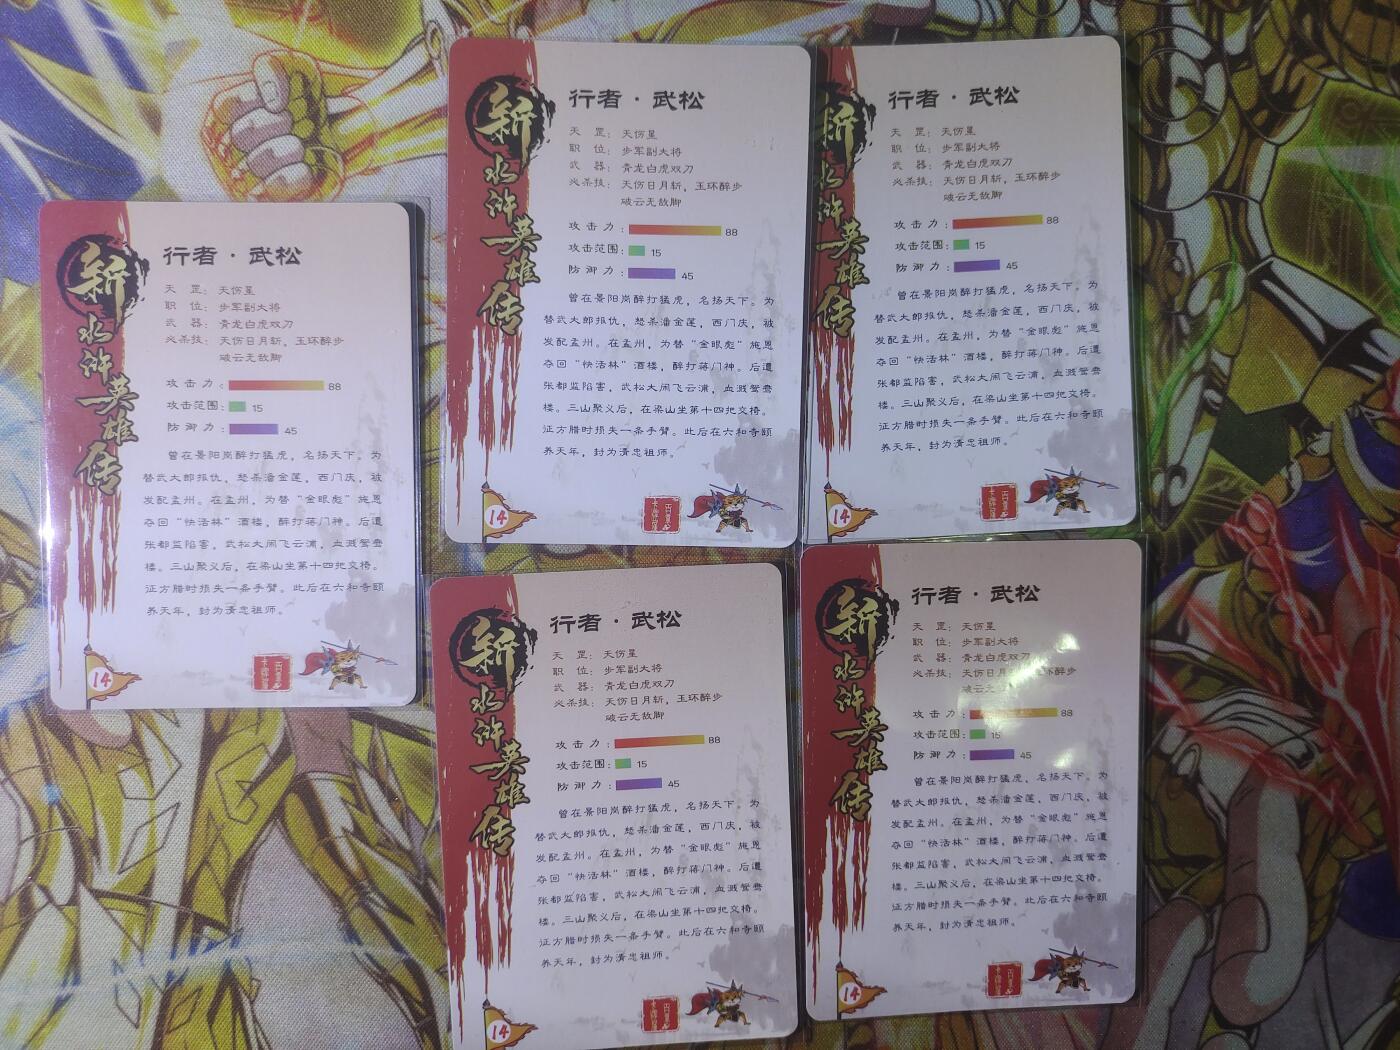 新水浒英雄传
行者·武松
天罡：天伤星
职位：步军副大将
武器：青龙白虎双刀
必杀技：天伤日月斩，玉环醉步
破云无敌脚
攻击力：88
攻击范围：15
防御力：45
曾在景阳岗醉打猛虎，名扬天下。为
替武大郎报仇，怒杀潘金莲，西门庆，被
发配孟州。在孟州，为替“金眼彪”施恩
夺回“快活林”酒楼，醉打蒋门神。后遭
张都监陷害，武松大闹飞云浦，血溅鸳鸯
楼。三山聚义后，在梁山坐第十四把交椅。
征方腊时损失一条手臂。此后在六和寺颐
养天年，封为清忠祖师。
14
新水浒英雄传
行者·武松
天罡：天伤星
职位：步军副大将
武器：青龙白虎双刀
必杀技：天伤日月斩，玉环醉步
破云无敌脚
攻击力：88
攻击范围：15
防御力：45
曾在景阳岗醉打猛虎，名扬天下。为
替武大郎报仇，怒杀潘金莲，西门庆，被
发配孟州。在孟州，为替“金眼彪”施恩
夺回“快活林”酒楼，醉打蒋门神。后遭
张都监陷害，武松大闹飞云浦，血溅鸳鸯
楼。三山聚义后，在梁山坐第十四把交椅。
征方腊时损失一条手臂。此后在六和寺颐
养天年，封为清忠祖师。
14
新水浒英雄传
行者·武松
天罡：天伤星
职位：步军副大将
武器：青龙白虎双刀
必杀技：天伤日月斩，玉环醉步
破云无敌脚
攻击力：88
攻击范围：15
防御力：45
曾在景阳岗醉打猛虎，名扬天下。为
替武大郎报仇，怒杀潘金莲，西门庆，被
发配孟州。在孟州，为替“金眼彪”施恩
夺回“快活林”酒楼，醉打蒋门神。后遭
张都监陷害，武松大闹飞云浦，血溅鸳鸯
楼。三山聚义后，在梁山坐第十四把交椅。
征方腊时损失一条手臂。此后在六和寺颐
养天年，封为清忠祖师。
14
新水浒英雄传
行者·武松
天罡：天伤星
职位：步军副大将
武器：青龙白虎双刀
必杀技：天伤日月斩，玉环醉步
破云无敌脚
攻击力：88
攻击范围：15
防御力：45
曾在景阳岗醉打猛虎，名扬天下。为
替武大郎报仇，怒杀潘金莲，西门庆，被
发配孟州。在孟州，为替“金眼彪”施恩
夺回“快活林”酒楼，醉打蒋门神。后遭
张都监陷害，武松大闹飞云浦，血溅鸳鸯
楼。三山聚义后，在梁山坐第十四把交椅。
征方腊时损失一条手臂。此后在六和寺颐
养天年，封为清忠祖师。
14
新水浒英雄传
行者·武松
天罡：天伤星
职位：步军副大将
武器：青龙白虎双刀
必杀技：天伤日月 醉步
破云
攻击力：88
攻击范围：15
防御力：45
曾在景阳岗醉打猛虎，名扬天下。为
替武大郎报仇，怒杀潘金莲，西门庆，被
发配孟州。在孟州，为替“金眼彪”施恩
夺回“快活林”酒楼，醉打蒋门神。后遭
张都监陷害，武松大闹飞云浦，血溅鸳鸯
楼。三山聚义后，在梁山坐第十四把交椅。
征方腊时损失一条手臂。此后在六和寺颐
养天年，封为清忠祖师。
14